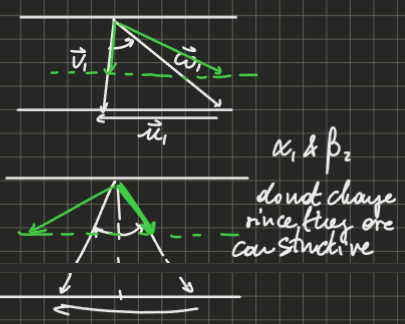 v⃗₁
ω⃗₁
u⃗₁
α₁ & β₂
do not change
since they are
constructive